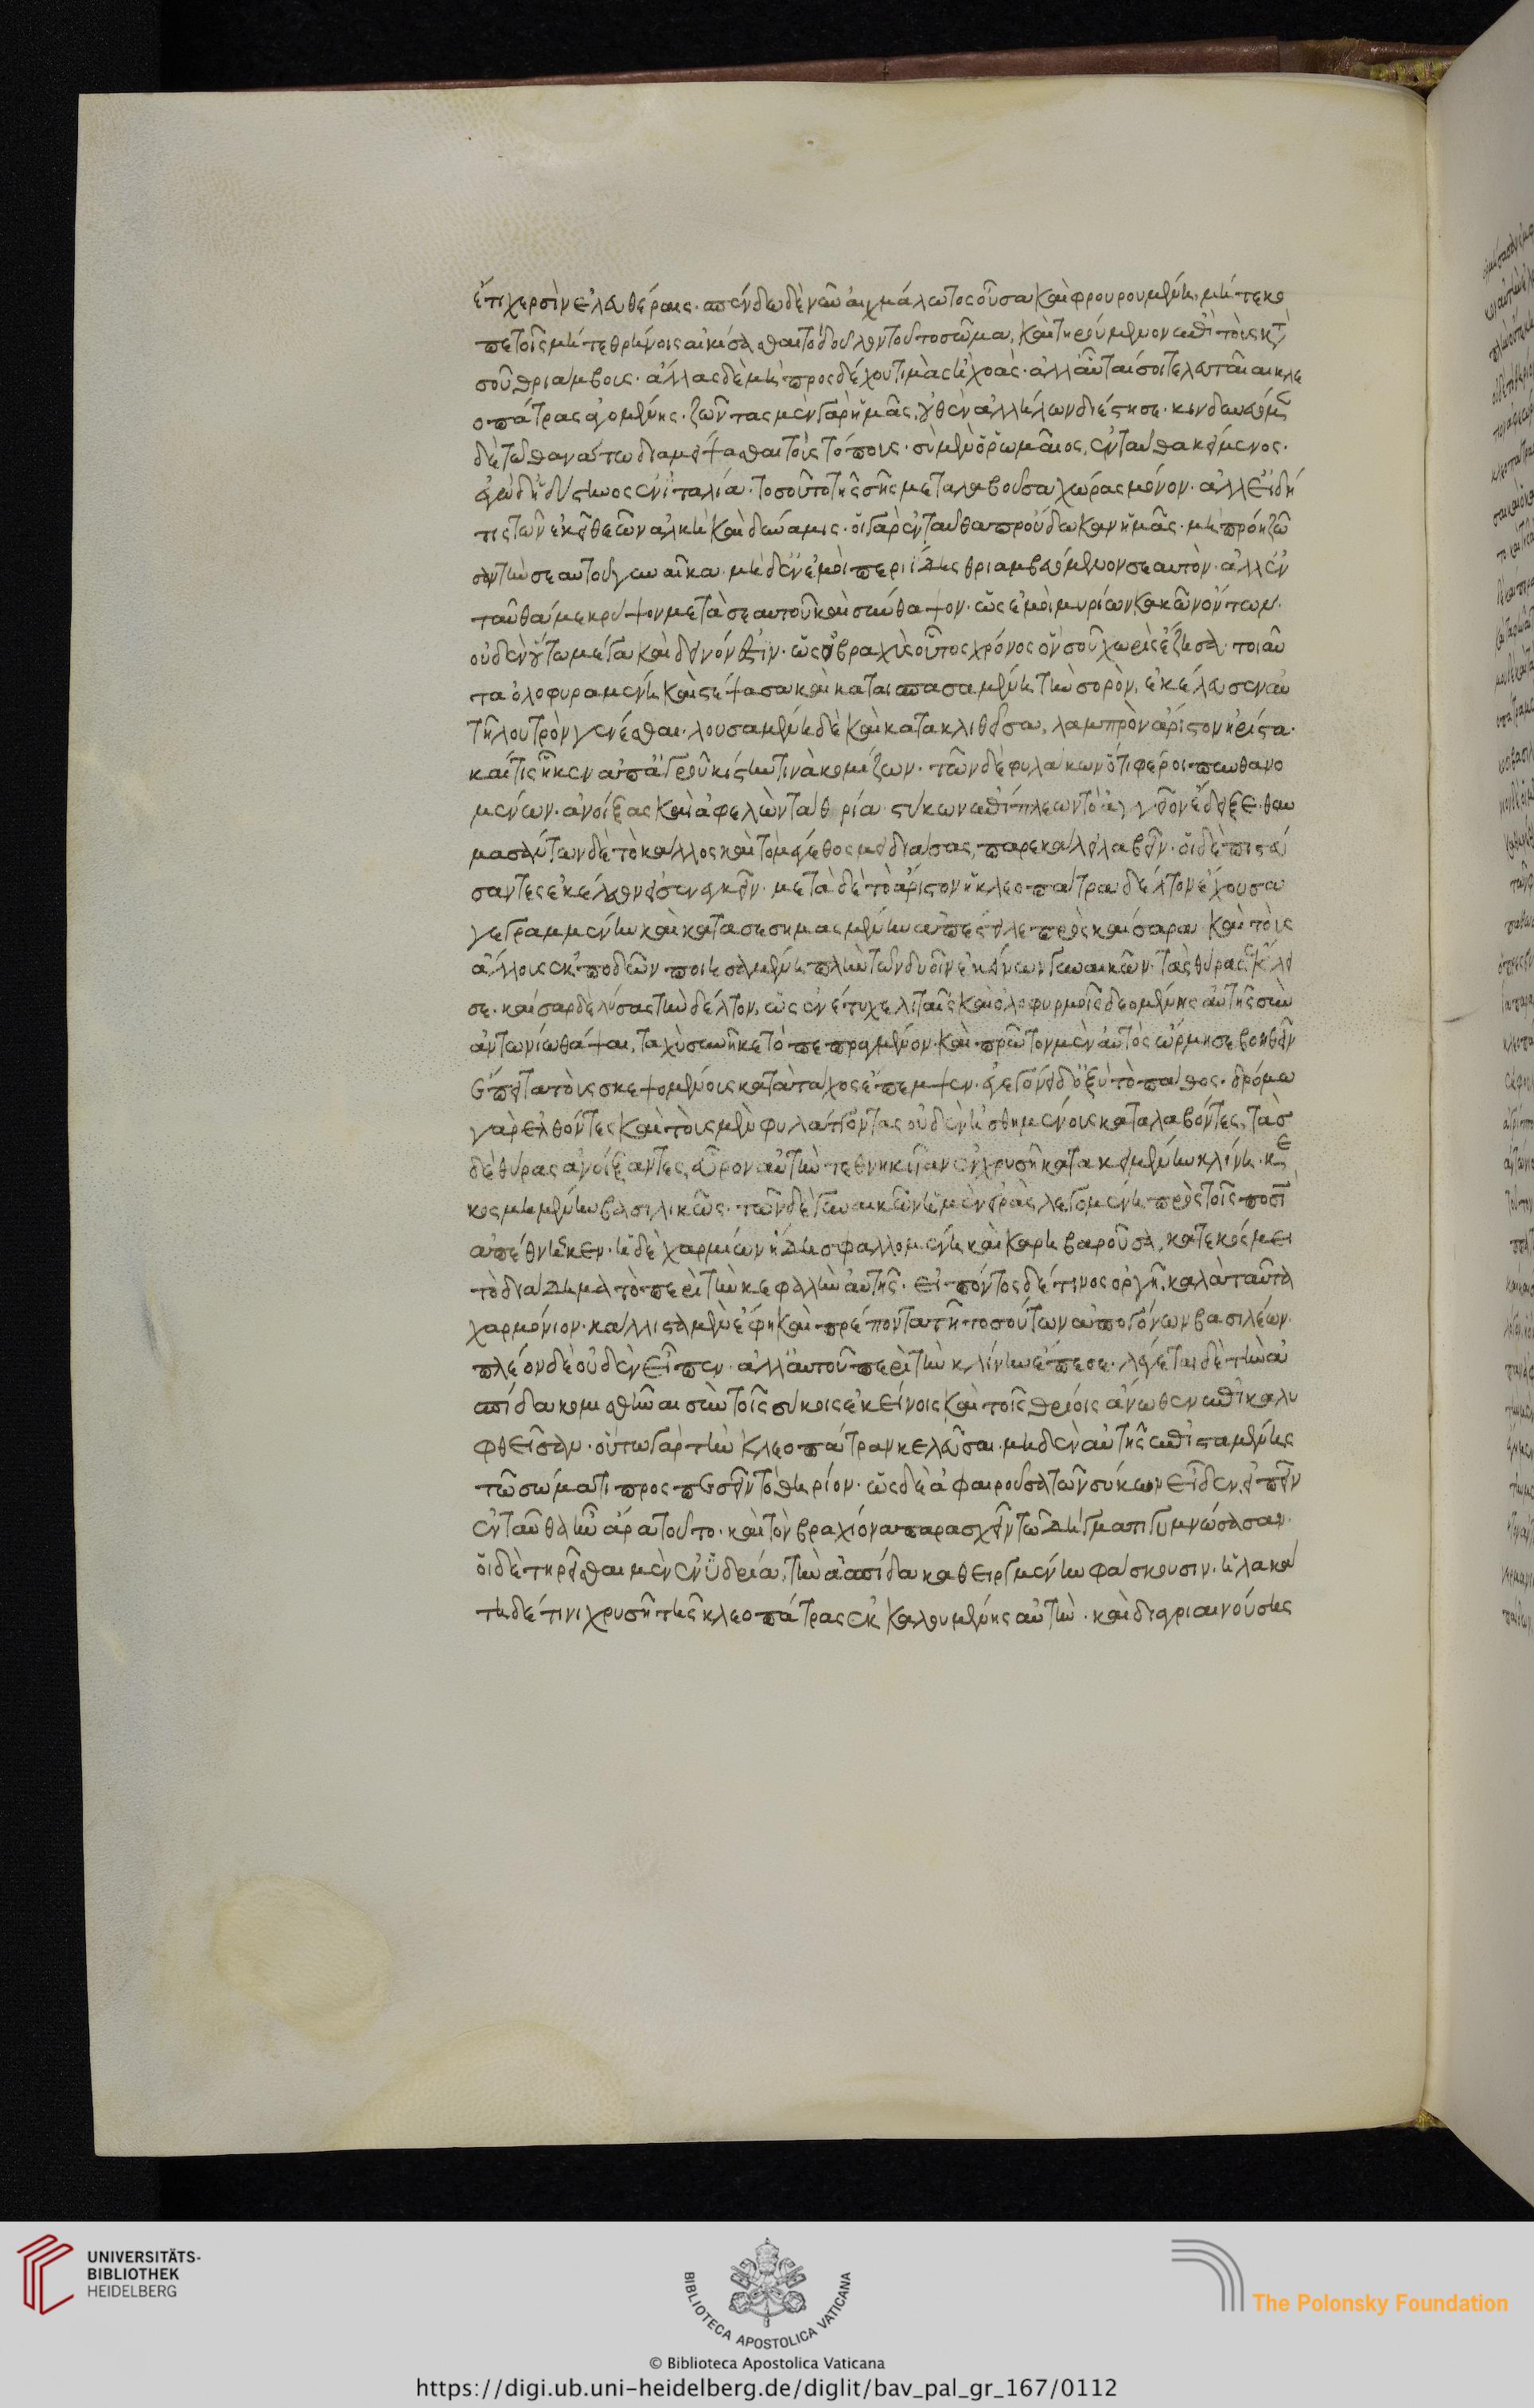 ἔτι χερσὶν ἐλευθέραις. σπένδω δὲ νῦν αἰχμάλωτος οὖσα καὶ φρουρουμένη, μήτε κο
πετοῖς μήτε θρήνοις αἰκίσασθαι τὸ δοῦλον τοῦτο σῶμα, καὶ τηρούμενον ἐπὶ τοὺς κατὰ
σοῦ θριάμβους. ἄλλας δὲ μὴ προσδέχου τιμὰς ἢ χοάς. ἀλλ' αὗταί σοι τελευταῖαι κλε
οπάτρας ἀγομένης. ζῶντας μὲν γὰρ ἡμᾶς, οὐθὲν ἀλλήλων διέστησε. κινδυνεύομεν
δὲ τῷ θανάτῳ διαμείψασθαι τοὺς τόπους. σὺ μὲν ὁ ῥωμαῖος, ἐνταῦθα κείμενος.
ἐγὼ δ' ἡ δύστηνος ἐν ἰταλίᾳ. τοσοῦτο τῆς σῆς μεταλαβοῦσα χώρας μόνον. ἀλλ' εἰ δή
τις τῶν ἐκεῖ θεῶν ἀλκὴ καὶ δύναμις. οἱ γὰρ ἐνταῦθα προύδωκαν ἡμᾶς. μὴ πρόῃ ζῶ
σαν τὴν σεαυτοῦ γυναῖκα. μηδ' ἐν ἐμοὶ περιίδῃς θριαμβευόμενον σεαυτὸν. ἀλλ' ἐν
ταῦθά με κρύψον μετὰ σεαυτοῦ καὶ σύνθαψον. ὡς ἐμοὶ μυρίων κακῶν ὄντων.
οὐδὲν οὕτω μέγα καὶ δεινόν ἐστιν. ὡς ὁ βραχὺς οὗτος χρόνος ὃν σοῦ χωρὶς ἔζησα. τοιαῦ
τα ὀλοφυραμένη καὶ στέψασα καὶ κατασπασαμένη τὴν σορὸν, ἐκέλευσεν αὐ
τῇ λουτρὸν γενέσθαι. λουσαμένη δὲ καὶ κατακλιθεῖσα, λαμπρὸν ἄριστον ἠρίστα.
καί τις ἧκεν ἀπ' ἀγροῦ κίστην τινὰ κομίζων. τῶν δὲ φυλάκων ὅτι φέροι πυνθανο
μένων. ἀνοίξας καὶ ἀφελὼν τὰ θρία σύκων ἐπίπλεων τὸ ἀγγεῖον ἔδειξε. θαυ
μασάντων δὲ τὸ κάλλος καὶ τὸ μέγεθος μειδιάσας, παρεκάλει λαβεῖν. οἱ δὲ πιστεύ
σαντες ἐκέλευον εἰσενεγκεῖν. μετὰ δὲ τὸ ἄριστον ἡ κλεοπάτρα δέλτον ἔχουσα
γεγραμμένην καὶ κατασεσημασμένην ἀπέστειλε πρὸς καίσαρα. καὶ τοὺς
ἄλλους ἐκποδὼν ποιησαμένη πλὴν τῶν δυοῖν ἐκείνων γυναικῶν. τὰς θύρας ἔκλει
σε. καῖσαρ δὲ λύσας τὴν δέλτον, ὡς ἐνέτυχε λιταῖς καὶ ὀλοφυρμοῖς δεομένης αὐτῆς σὺν
ἀντωνίῳ θάψαι, ταχὺ συνῆκε τὸ πεπραγμένον. καὶ πρῶτον μὲν αὐτὸς ὥρμησε βοηθεῖν
ἔπειτα τοὺς σκεψομένους κατὰ τάχος ἔπεμψεν. ἐγεγόνει δ' ὀξὺ τὸ πάθος. δρόμῳ
γὰρ ἐλθόντες καὶ τοὺς μὲν φυλάττοντας οὐδὲν ᾐσθημένους καταλαβόντες, τὰς
δὲ θύρας ἀνοίξαντες, εὗρον αὐτὴν τεθνηκυῖαν ἐν χρυσῇ κατακειμένην κλίνῃ. κε
κοσμημένην βασιλικῶς. τῶν δὲ γυναικῶν ἡ μὲν εἰρὰς λεγομένη πρὸς τοῖς ποσὶ
ἀπέθνησκεν. ἡ δὲ χαρμίων ἤδη σφαλλομένη καὶ καρηβαροῦσα, κατεκόσμει
τὸ διάδημα τὸ περὶ τὴν κεφαλὴν αὐτῆς. εἰπόντος δέ τινος ὀργῇ. καλὰ ταῦτα
χαρμόνιον. κάλλιστα μὲν ἔφη καὶ πρέποντα τῇ τοσούτων ἀπογόνων βασιλέων.
πλέον δὲ οὐδὲν εἶπεν. ἀλλ' αὐτοῦ περὶ τὴν κλίνην ἔπεσε. λέγεται δὲ τὴν ἀ
σπίδα κομισθῆναι σὺν τοῖς σύκοις ἐκείνοις καὶ τοῖς θρίοις ἄνωθεν ἐπικαλυ
φθεῖσαν. οὕτω γὰρ τὴν κλεοπάτραν κελεῦσαι. μηδὲν αὐτῆς ἐπισταμένης
τῷ σώματι προσπεσεῖν τὸ θηρίον. ὡς δὲ ἀφαιροῦσα τῶν σύκων εἶδεν, εἰπεῖν
ἐνταῦθα ἦν ἄρα τοῦτο. καὶ τὸν βραχίονα παρασχεῖν τῷ δήγματι γυμνώσασαν.
οἱ δὲ τηρεῖσθαι μὲν ἐν ὑδρίᾳ, τὴν ἀσπίδα καθειργμένην φάσκουσιν. ἠλακά
τῃ δέ τινι χρυσῇ τῆς κλεοπάτρας ἐκκαλουμένης αὐτὴν. καὶ διαγριαινούσης
UNIVERSITÄTS-
BIBLIOTHEK
HEIDELBERG
BIBLIOTECA APOSTOLICA VATICANA
The Polonsky Foundation
© Biblioteca Apostolica Vaticana
https://digi.ub.uni-heidelberg.de/diglit/bav_pal_gr_167/0112